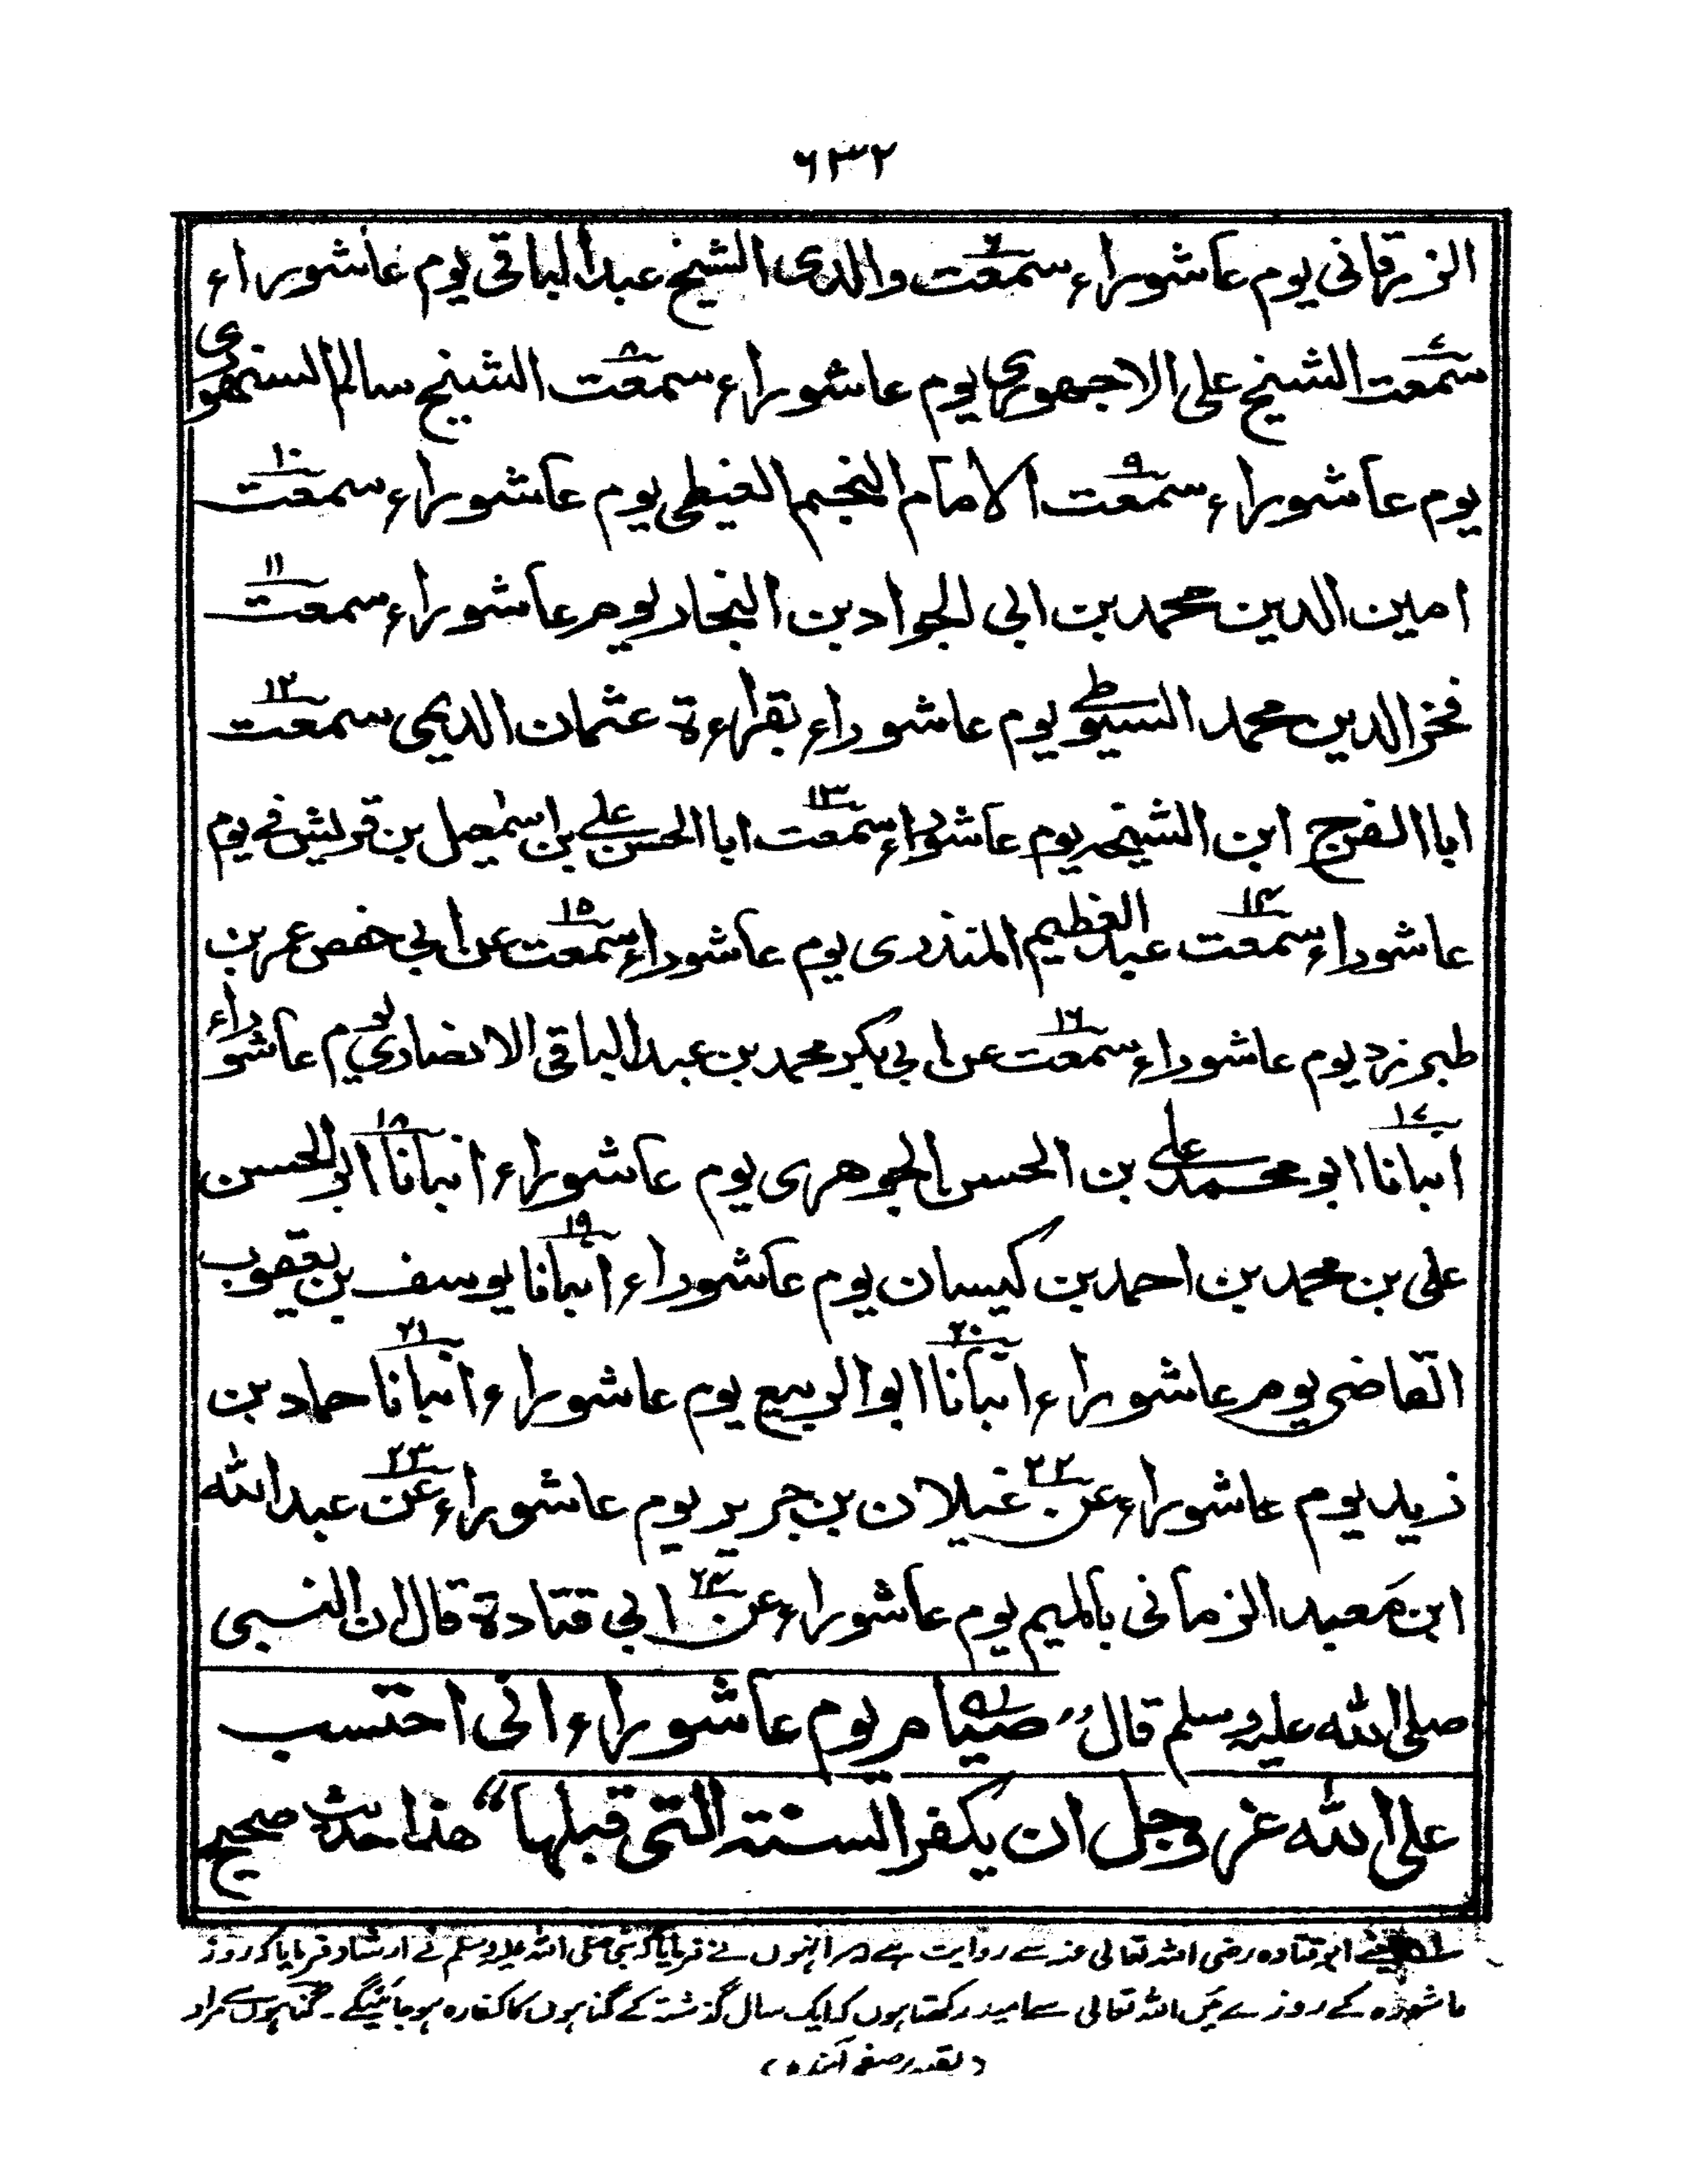 ۶۳۲
الزرقانی یوم عاشوراء سمعت والدی الشیخ عبدالباقی یوم عاشوراء
سمعت الشیخ علی الاجھوری یوم عاشوراء سمعت الشیخ سالم السنھوری
یوم عاشوراء سمعت الامام النجم الغیطی یوم عاشوراء سمعت
امین الدین محمد بن ابی الجواد بن النجار یوم عاشوراء سمعت
فخر الدین محمد السیوطی یوم عاشوراء بقراءة عثمان الدیمی سمعت
ابا الفرج ابن الشیخہ یوم عاشوراء سمعت ابا الحسن علی بن اسمٰعیل بن قریش فے یوم
عاشوراء سمعت عبد العظیم المنذری یوم عاشوراء سمعت عن ابی حفص عمر بن
طبرزد یوم عاشوراء سمعت عن ابی بکر محمد بن عبدالباقی الانصاری یوم عاشوراء
انبانا ابو محمد علی بن الحسن الجوھری یوم عاشوراء انبانا ابو الحسن
علی بن محمد بن احمد بن کیسان یوم عاشوراء انبانا یوسف بن یعقوب
القاضی یوم عاشوراء انبانا ابو الربیع یوم عاشوراء انبانا حماد بن
زید یوم عاشوراء عن غیلان بن جریر یوم عاشوراء عن عبد اللہ
ابن معبد الزمانی بالمیم یوم عاشوراء عن ابی قتادة قال ان النبی
صلی اللہ علیہ وسلم قال ”صیام یوم عاشوراء انی احتسب
علی اللہ عز وجل ان یکفر السنۃ التی قبلھا“ ھذا حدیث صحیح
ابو قتادہ رضی اللہ تعالی عنہ سے روایت ہے انہوں نے فرمایا کہ نبی صلی اللہ علیہ وسلم نے ارشاد فرمایا کہ روز
عاشورہ کے روزے میں اللہ تعالی سے امید رکھتا ہوں کہ ایک سال گذشتہ کے گناہوں کا کفارہ ہو جائینگے۔ گناہوں سے مراد
(بقیہ بر صفحہ آئندہ)